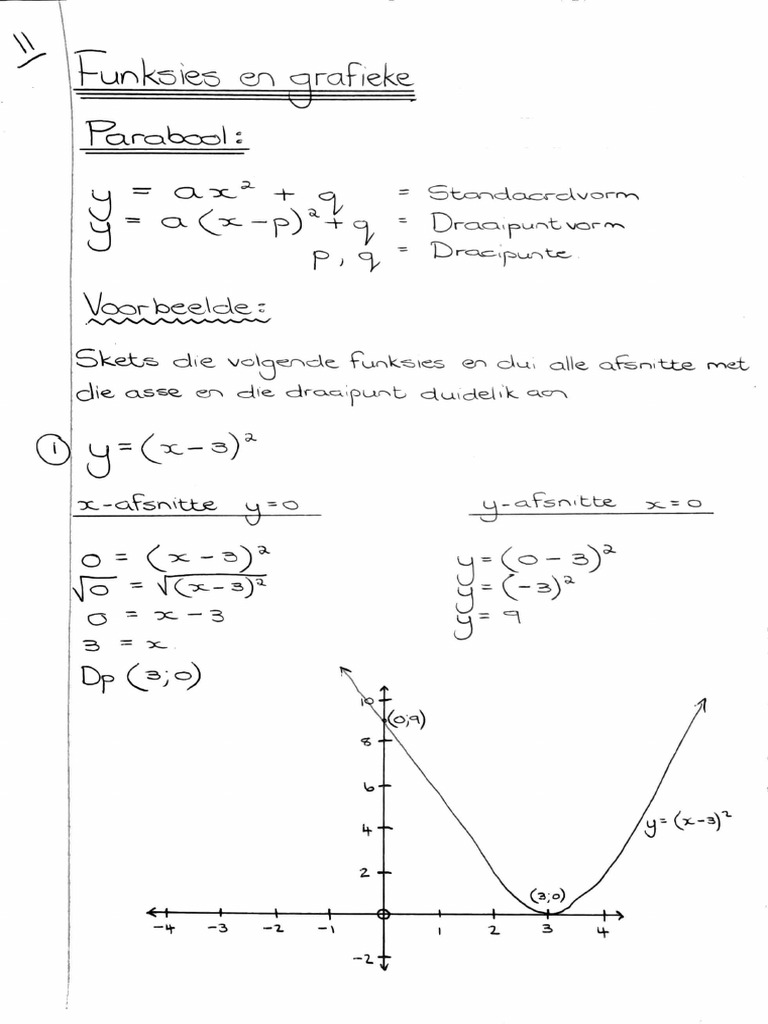 11
Funksies en grafieke
Parabool:
y = ax² + q = Standaardvorm
y = a(x-p)² + q = Draaipuntvorm
p, q = Draaipunte.
Voorbeelde:
Skets die volgende funksies en dui alle afsnitte met
die asse en die draaipunt duidelik aan
① y = (x-3)²
x-afsnitte y=0
0 = (x-3)²
√0 = √(x-3)²
0 = x-3
3 = x
Dp (3;0)
y-afsnitte x=0
y = (0-3)²
y = (-3)²
y = 9
10
(0;9)
8
6
4
y = (x-3)²
2
(3;0)
-4 -3 -2 -1 1 2 3 4
-2